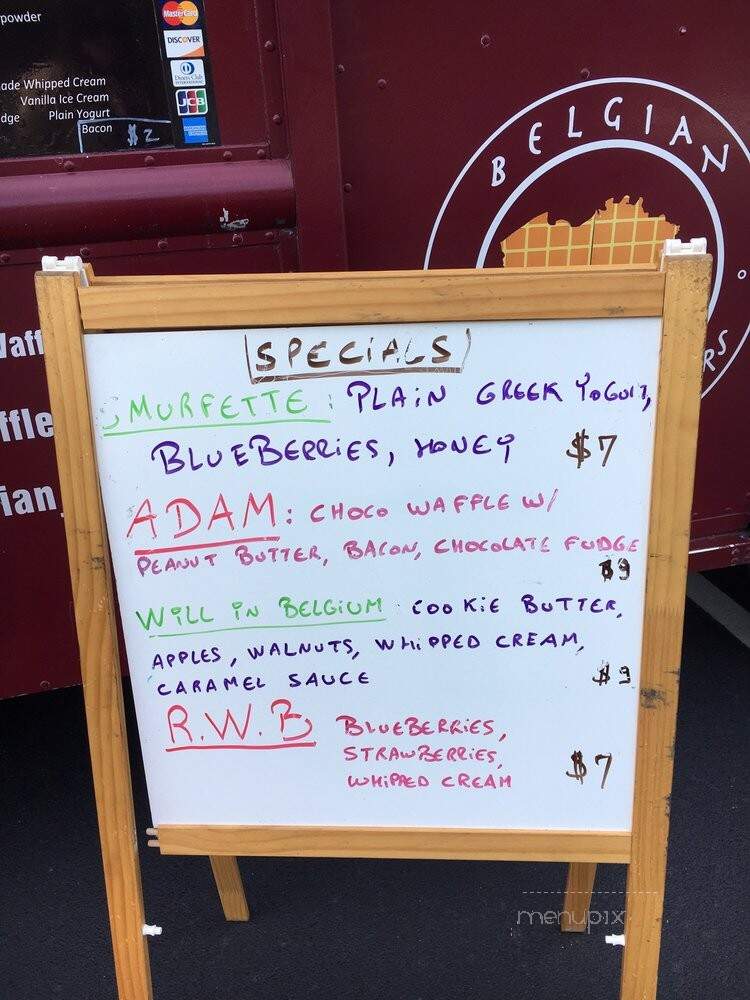 powder
MasterCard
DISCOVER
Diners Club
INTERNATIONAL
JCB
ade Whipped Cream
Vanilla Ice Cream
dge Plain Yogurt
Bacon $2
BELGIAN
RS
Waff
ffle
ian
SPECIALS
SMURFETTE: PLAIN GREEK YOGURT,
BLUEBERRIES, HONEY $7
ADAM: CHOCO WAFFLE W/
PEANUT BUTTER, BACON, CHOCOLATE FUDGE
$9
WILL IN BELGIUM COOKIE BUTTER,
APPLES, WALNUTS, WHIPPED CREAM,
CARAMEL SAUCE $9
R.W.B BLUEBERRIES,
STRAWBERRIES,
WHIPPED CREAM $7
menupix